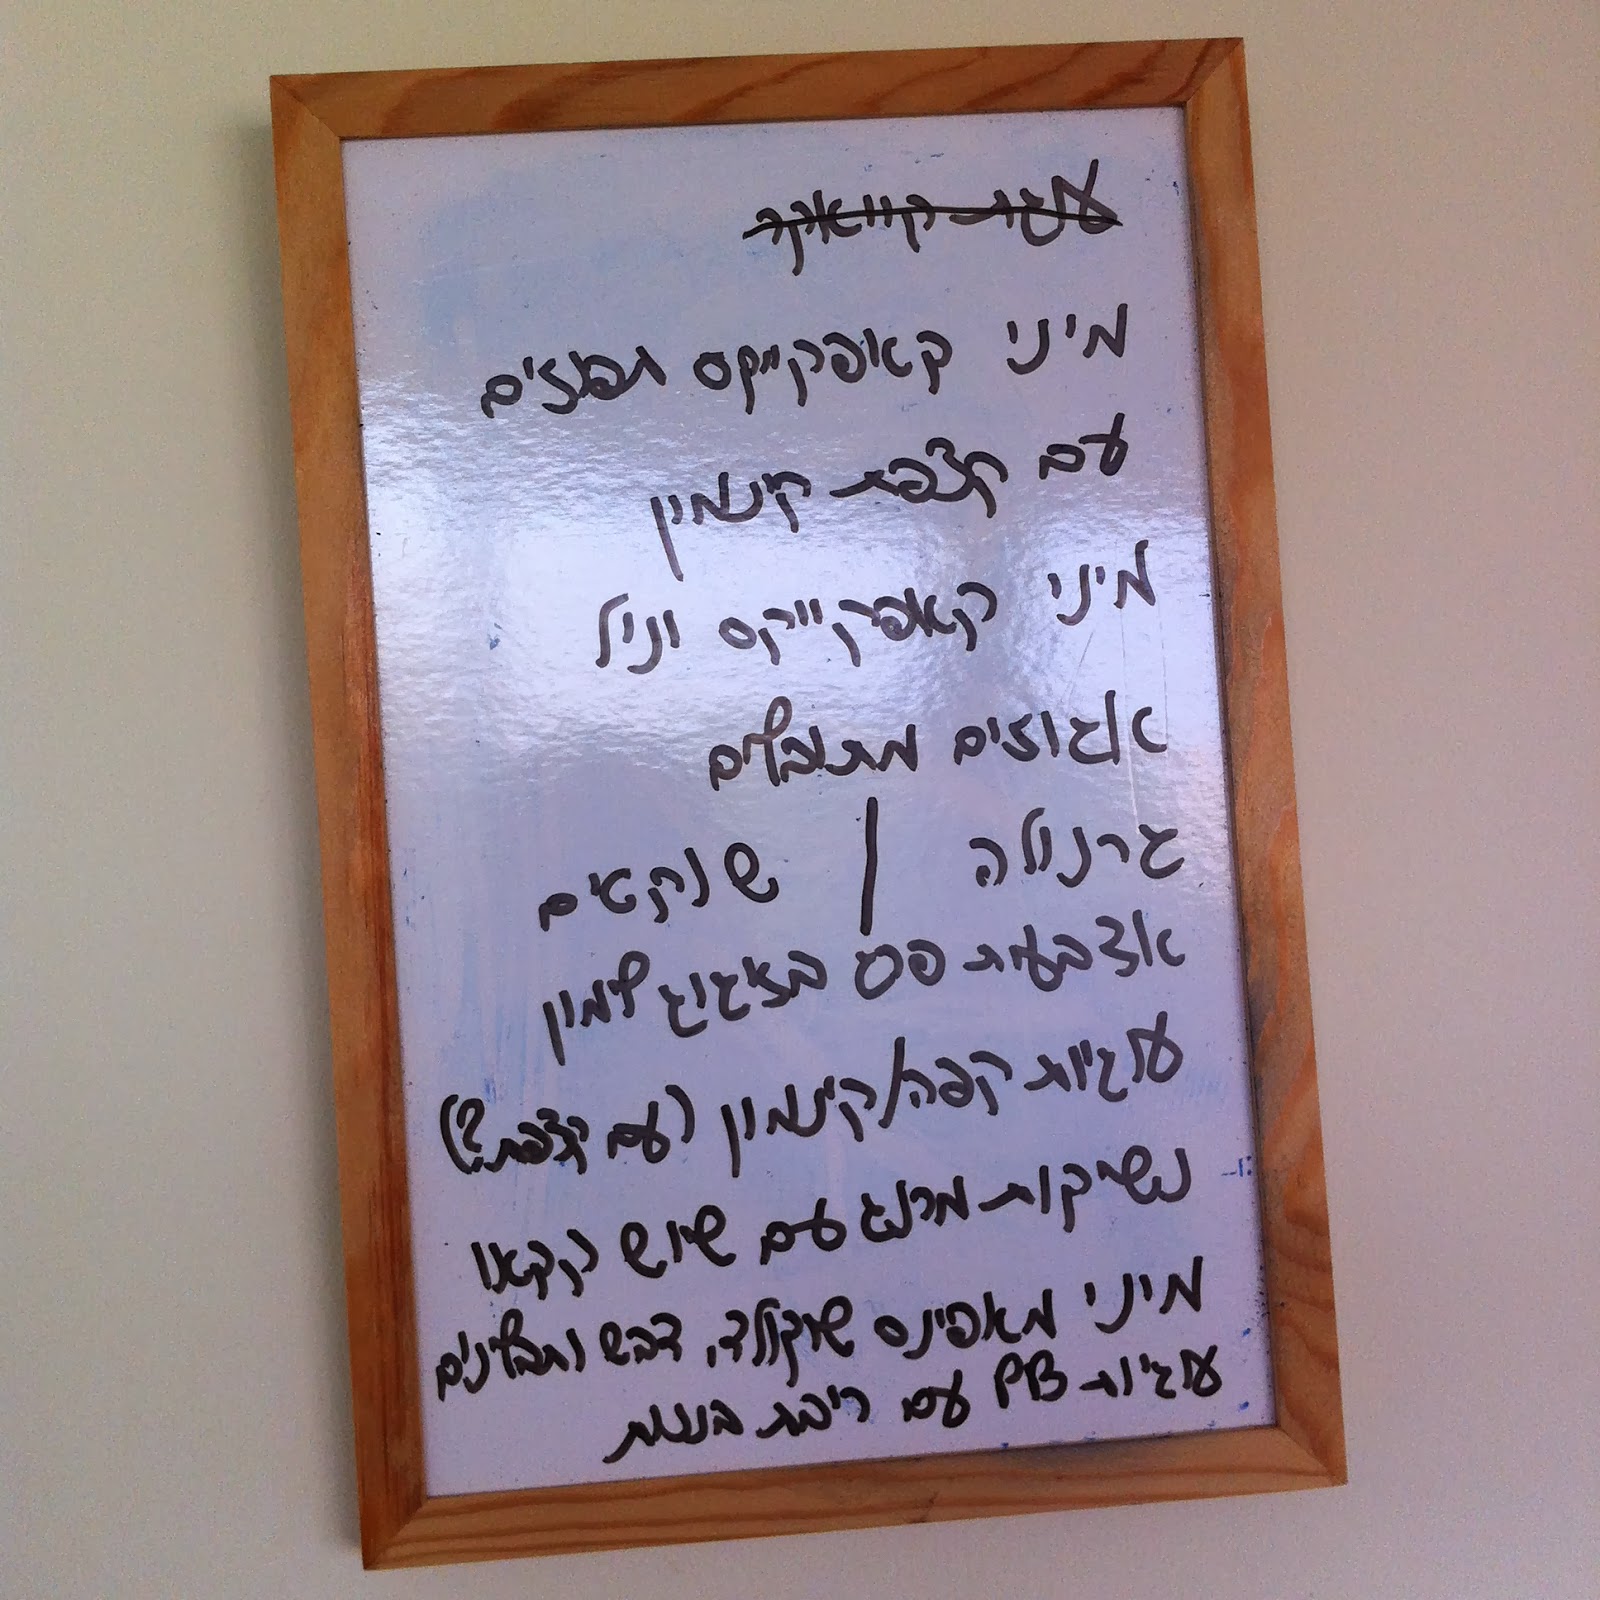 עוגת קוואקר
מיני קאפקייקס תפוזים
עם קצפת קינמון
מיני קאפקייקס וניל
אגוזים מתובלים
גרנולה / שנקאים
אצבעות פס בזיגוג לימון
עוגיות קפה/קינמון (עם קצפת?)
נשיקות מרנג עם שיש קקאו
מיני מאפינס שוקולד, דבש ותבלינים
עוגיות PB עם ריבת בננות